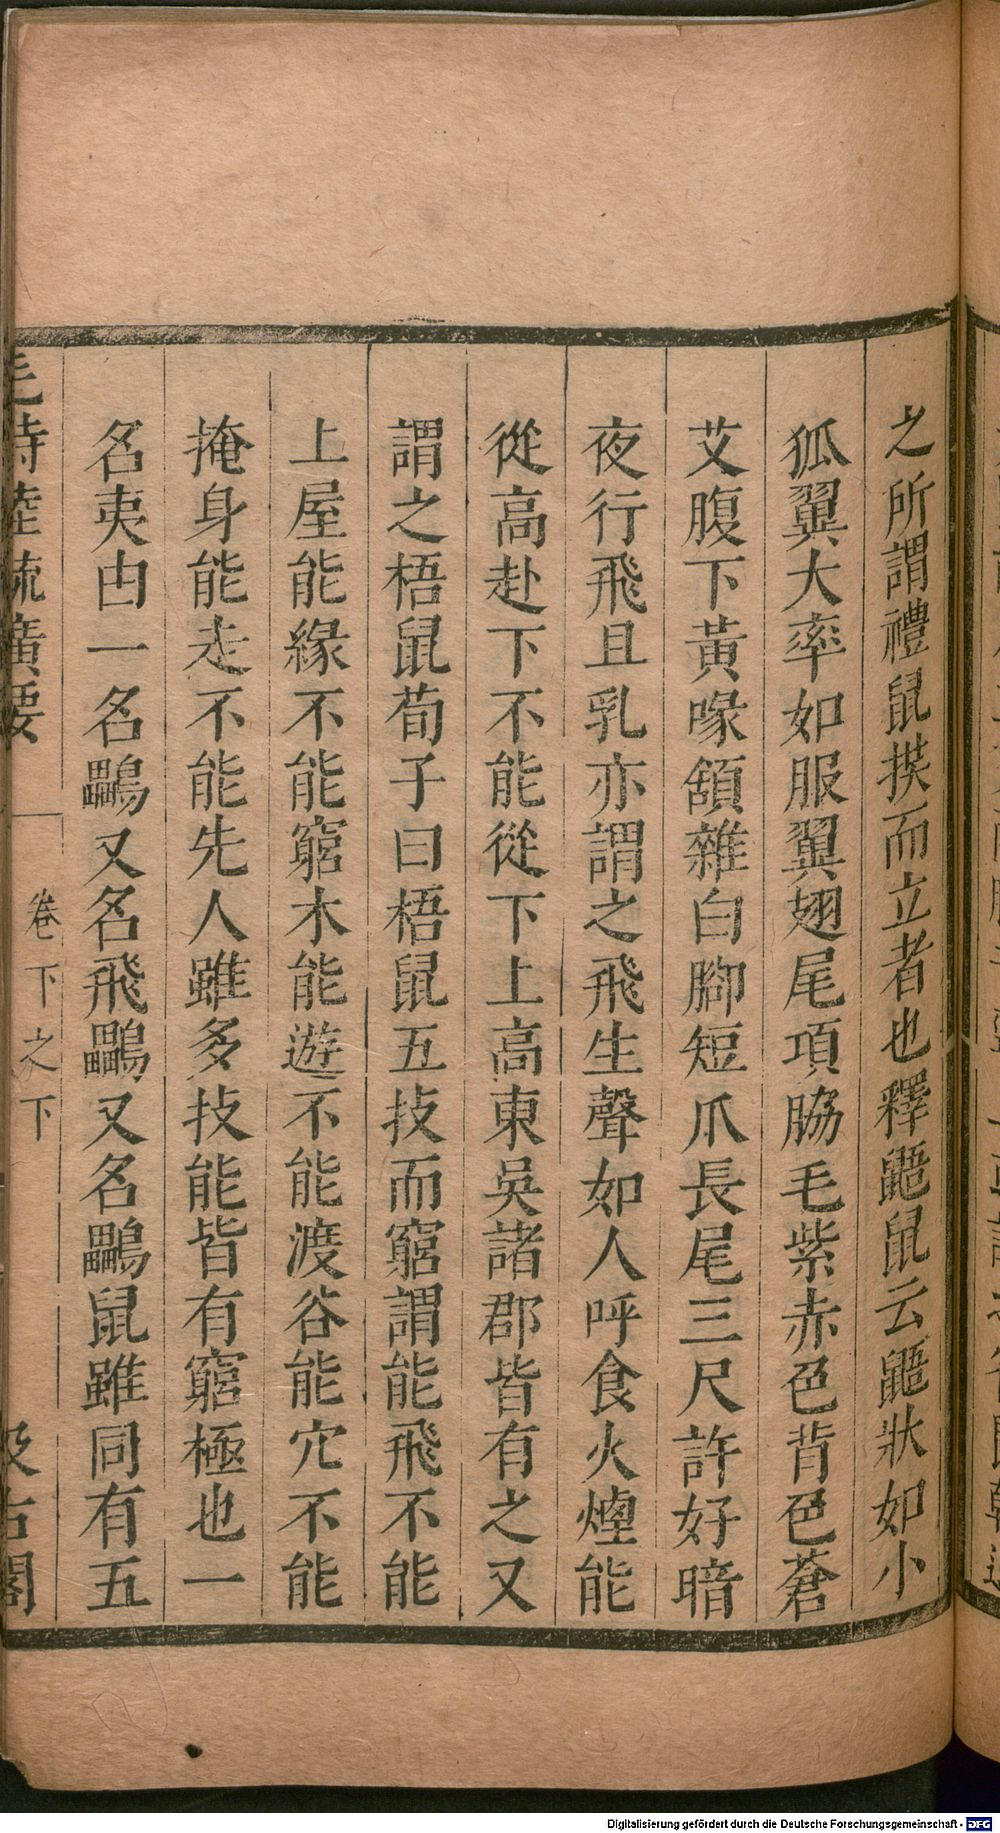 之所謂禮鼠拱而立者也釋鼯鼠云鼯狀如小
狐翼大率如服翼翅尾項脇毛紫赤色背色蒼
艾腹下黃喙頷雜白腳短爪長尾三尺許好暗
夜行飛且乳亦謂之飛生聲如人呼食火煙能
從高赴下不能從下上高東吳諸郡皆有之又
謂之梧鼠荀子曰梧鼠五技而窮謂能飛不能
上屋能緣不能窮木能遊不能渡谷能穴不能
掩身能走不能先人雖多技能皆有窮極也一
名夷甶一名鸓又名飛鸓又名鸓鼠雖同有五
毛詩陸疏廣要
卷下之下
汲古閣
Digitalisierung gefördert durch die Deutsche Forschungsgemeinschaft - DFG